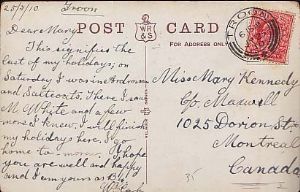 28/3/10 Troon
POST CARD
WR
& S
FOR ADDRESS ONLY
TROON
Dear Mary
This signifies the
last of my holidays; on
Saturday I was in Ardrossan
and Saltcoats. There I saw
M. White and a few
more I knew. I will finish
my holidays here. I go
home to-morrow. I hope
you are well and happy
and I am yours as
Miss Mary Kennedy
C/o Maxwell
1025 Dorion St.
Montreal
Canada